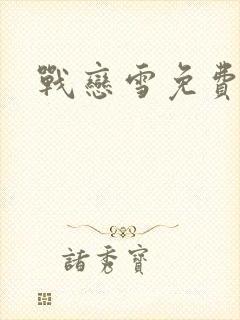 戰戀雪免費
諸秀寶